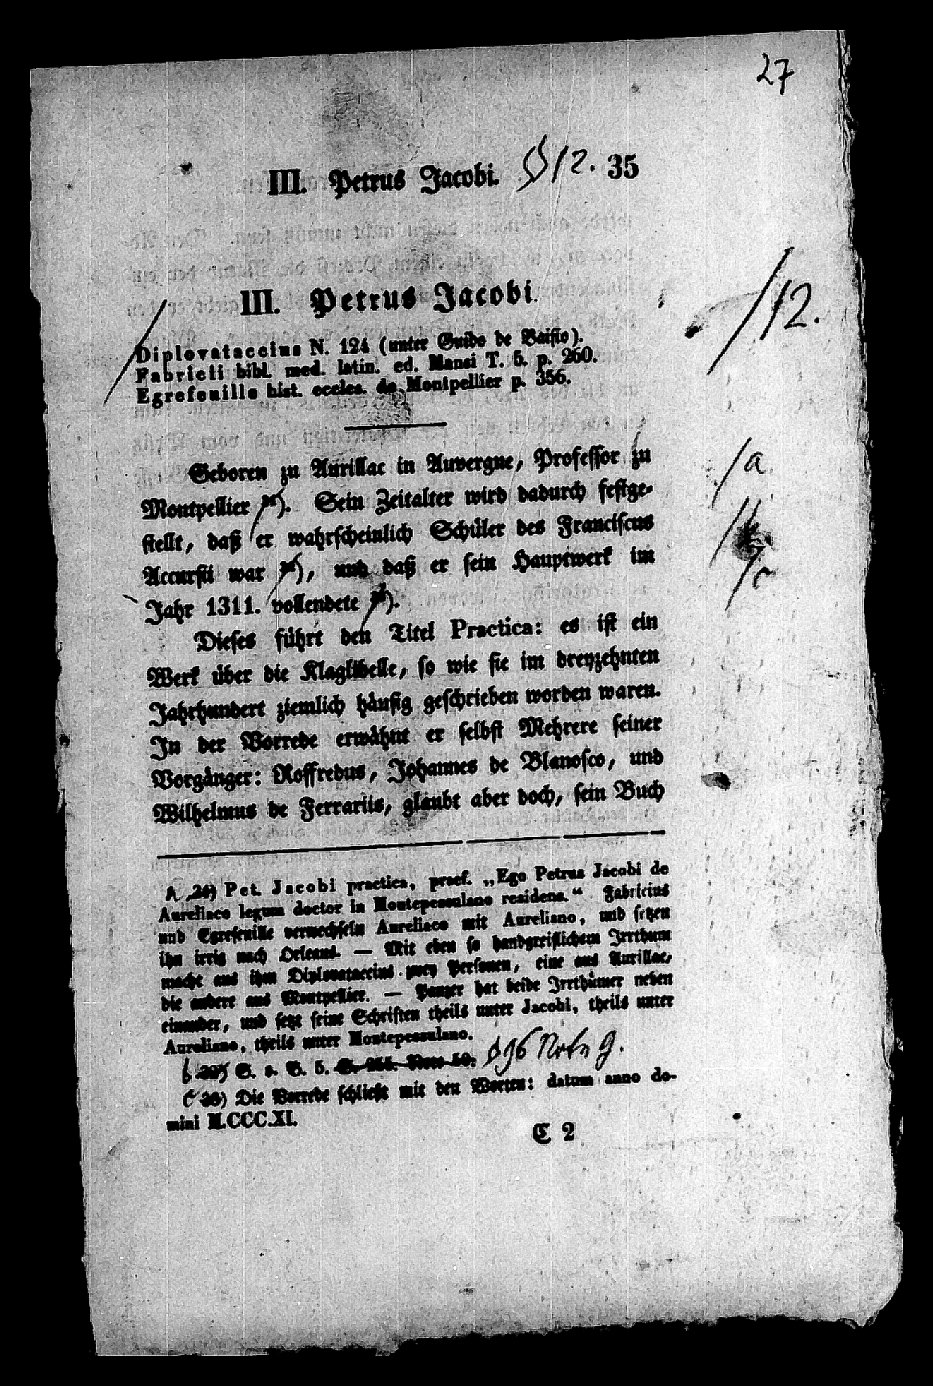 27
III. Petrus Jacobi. § 12. 35
III. Petrus Jacobi.
/12.
Diplovataccius N. 124 (unter Guido de Baisio).
Fabricii bibl. med. latin. ed. Mansi T. 5. p. 260.
Egrefeuille hist. eccles. de Montpellier p. 356.
Geboren zu Aurillac in Auvergne, Professor zu
/a
Montpellier ). Sein Zeitalter wird dadurch festge-
stellt, daß er wahrscheinlich Schüler des Franciscus
Accursii war ), und daß er sein Hauptwerk im
/c
Jahr 1311. vollendete ).
Dieses führt den Titel Practica: es ist ein
Werk über die Klaglibelle, so wie sie im dreyzehnten
Jahrhundert ziemlich häufig geschrieben worden waren.
In der Vorrede erwähnt er selbst Mehrere seiner
Vorgänger: Roffredus, Johannes de Blanosco, und
Wilhelmus de Ferrariis, glaubt aber doch, sein Buch
A ) Pet. Jacobi practica, praef. „Ego Petrus Jacobi de
Aureliaco legum doctor in Montepessulano residens.“ Fabricius
und Egrefeuille verwechseln Aureliaco mit Aureliano, und setzen
ihn irrig nach Orleans. — Mit eben so handgreiflichem Irrthum
macht aus ihm Diplovataccius zwey Personen, eine aus Aurillac,
die andere aus Montpellier. — Panzer hat beide Irrthümer neben
einander, und setzt seine Schriften theils unter Jacobi, theils unter
Aureliano, theils unter Montepessulano.
b ) S. o. B. 5. § 96 Note g.
c ) Die Vorrede schließt mit den Worten: datum anno do-
mini M.CCC.XI.
C 2